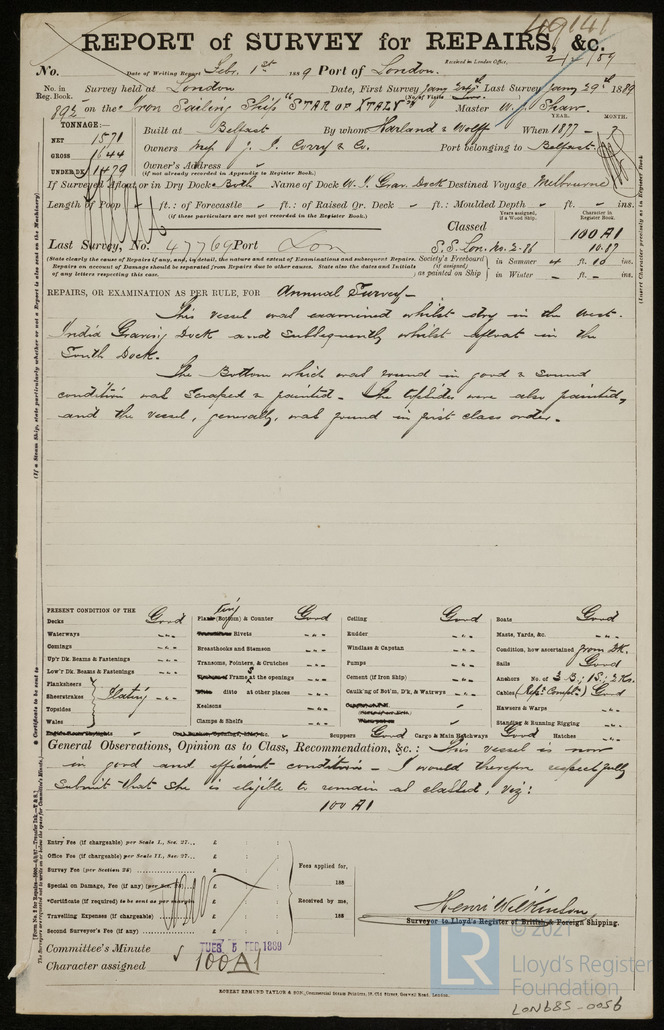 49141
REPORT of SURVEY for REPAIRS, &c.
Received in London Office,
No.
Date of Writing Report Feb. 1st 1889 Port of London.
No. in Reg. Book.
Survey held at London
Date, First Survey Jany Last Survey Jany 29th 1889
(No. of Visits
892 on the Iron Sailing Ship "STAR OF ITALY"
Master W. J. Shaw.
TONNAGE:—
YEAR. MONTH.
NET 1571
Built at Belfast By whom Harland & Wolff When 1877 - 7
GROSS 1644
Owners Messrs J. P. Corry & Co. Port belonging to Belfast
UNDER DK. 1479
Owner's Address
(if not already recorded in Appendix to Register Book.)
If Surveyed Afloat or in Dry Dock Both Name of Dock W. I. Grav. Dock Destined Voyage Melbourne
Length of Poop ft.: of Forecastle ft.: of Raised Qr. Deck ft.: Moulded Depth ft. ins.
(if these particulars are not yet recorded in the Register Book.)
Years assigned, if a Wood Ship.
Character in Register Book.
Classed 100A1
Last Survey, No. 47769 Port Lon
S.S. Lon. No. 2-86 10.87
(State clearly the cause of Repairs if any, and, in detail, the nature and extent of Examinations and subsequent Repairs.
Repairs on account of Damage should be separated from Repairs due to other causes. State also the dates and Initials
of any letters respecting this case.
Society's Freeboard (if assigned) as painted on Ship
in Summer 4 ft. 10 ins.
in Winter - ft. - ins.
REPAIRS, OR EXAMINATION AS PER RULE, FOR Annual Survey-
This vessel was examined whilst dry in the West.
India Graving Dock and subsequently whilst afloat in the
South Dock.
The Bottom which was found in good & sound
condition was scraped & painted - The topsides were also painted,
and the vessel, generally, was found in first class order.-
PRESENT CONDITION OF THE
Decks Good
Waterways " " "
Comings " " "
Up'r Dk. Beams & Fastenings " " "
Low'r Dk. Beams & Fastenings " " "
Planksheers
Sheerstrakes
Topsides
Wales
Plating
Plating (Bottom) & Counter Good
Rivets " " "
Breasthooks and Stemson " " "
Transoms, Pointers, & Crutches " " "
Frames at the openings " " "
ditto at other places " " "
Keelsons " " "
Clamps & Shelfs " " "
Ceiling Good
Rudder " " "
Windlass & Capstan " " "
Pumps " " "
Cement (if Iron Ship) " " "
Caulk'ng of Bot'm, D'k, & Watrwys " " "
Scuppers Good
Cargo & Main Hatchways Good
Boats Good
Masts, Yards, &c. " " "
Condition, how ascertained from Dk.
Sails Good
Anchors No. of 3 B.; 1 S.; 2 Ks.
Cables (Rept. Complt.) Good
Hawsers & Warps " " "
Standing & Running Rigging " " "
Hatches " " "
General Observations, Opinion as to Class, Recommendation, &c.: This vessel is now
in good and efficient condition - I would therefore respectfully
submit that she is eligible to remain as classed, viz:
100 A1
Entry Fee (if chargeable) per Scale I., Sec. 27 £
Office Fee (if chargeable) per Scale II., Sec. 27 £
Survey Fee (per Section 28) £
Special on Damage, Fee (if any) (per Sec. 28) £
*Certificate (if required) to be sent as per margin £
Travelling Expenses (if chargeable) £
Second Surveyor's Fee (if any) £
Fees applied for, 188
Received by me, 188
Henri Wilkinson,
Surveyor to Lloyd's Register of British & Foreign Shipping.
Committee's Minute TUES 5 FEB 1889
Character assigned 100A1
ROBERT EDMUND TAYLOR & SON, Commercial Steam Printers, 19, Old Street, Goswell Road, London.
© 2021
LR
Lloyd's Register
Foundation
LON685-0056